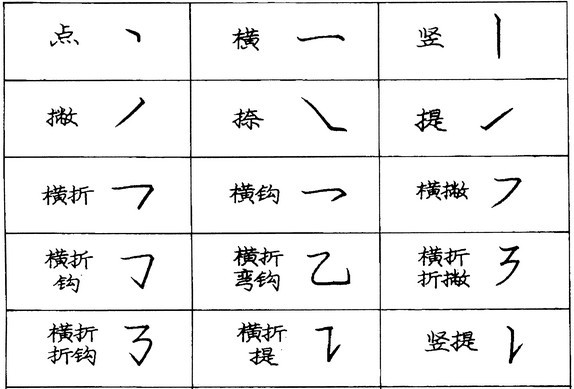 点 丶 横 一 竖 丨
撇 丿 捺 ㇏ 提 ㇀
横折 ㇕ 横钩 乛 横撇 ㇇
横折钩 ㇆ 横折弯钩 乙 横折折撇 ㇋
横折折钩 ㇌ 横折提 ㇊ 竖提 ㇙